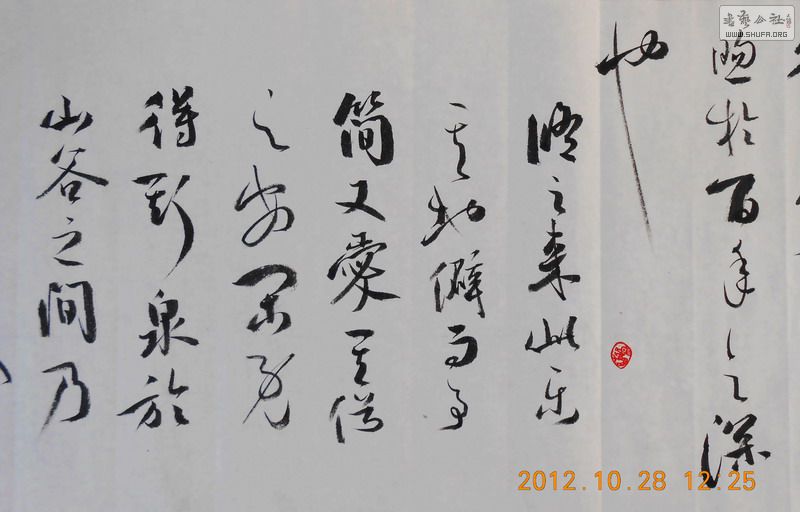 煦於百年之深
也
脩之來此樂
其地僻而事
簡又愛其俗
之安閒既
得斯泉於
山谷之間乃
书艺公社
WWW.SHUFA.ORG
2012.10.28 12:25